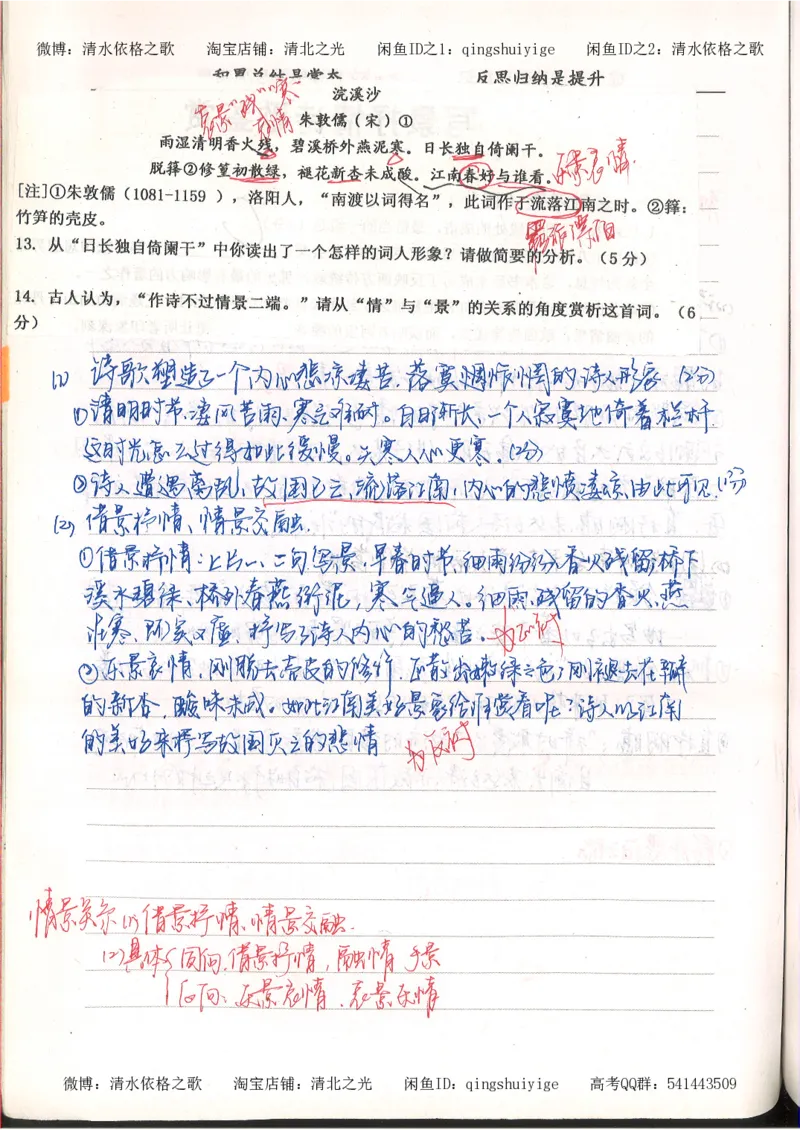 微博：清水依格之歌 淘宝店铺：清北之光 闲鱼ID之1：qingshuiyige 闲鱼ID之2：清水依格之歌
积累总结是常态 反思归纳是提升
浣溪沙
朱敦儒（宋）①
雨湿清明香火残，碧溪桥外燕泥寒。日长独自倚阑干。
脱箨②修篁初散绿，褪花新杏未成酸。江南春好与谁看。
乐景哀情
[注]①朱敦儒（1081-1159 ），洛阳人，“南渡以词得名”，此词作于流落江南之时。②箨：
竹笋的壳皮。
13. 从“日长独自倚阑干”中你读出了一个怎样的词人形象？请做简要的分析。（5分）
14. 古人认为，“作诗不过情景二端。”请从“情”与“景”的关系的角度赏析这首词。（6
分）
(1) 诗歌塑造了一个内心悲凉凄苦、落寞惆怅的诗人形象 (2分)
①清明时节，凄风苦雨，寒意难耐。白日渐长，一个人寂寞地倚着栏杆，
这时光怎么过得如此缓慢。天寒人心更寒。(2分)
②诗人遭遇离乱，故国已亡，流落江南，内心的悲愤凄凉由此可见.(1分)
(2) 借景抒情、情景交融.
①借景抒情：上片一、二句写景，早春时节，细雨纷纷，香火残留，桥下
溪水碧绿、桥外春燕衔泥，寒气逼人。细雨、残留的香火、燕
泥寒，抒写了诗人内心的愁苦。为正衬
②乐景哀情，刚脱去壳皮的修竹，正散出嫩绿之色；刚褪去花瓣
的新杏，酸味未成。如此江南美好景象给谁赏看呢？诗人以江南
的美好来抒写故国灭亡的悲情 为反衬
情景关系 (1) 借景抒情、情景交融.
(2)具体 同向：借景抒情，融情于景
反向：乐景哀情、哀景乐情
微博：清水依格之歌 淘宝店铺：清北之光 闲鱼ID：qingshuiyige 高考QQ群：541443509